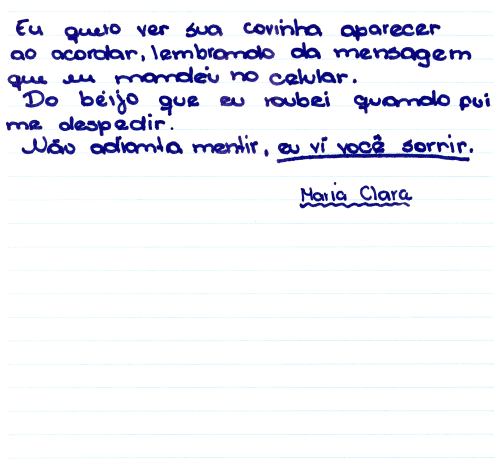 Eu quero ver sua covinha aparecer
ao acordar, lembrando da mensagem
que eu mandei no celular.
Do beijo que eu roubei quando fui
me despedir.
Não adianta mentir, eu vi você sorrir.
Maria Clara